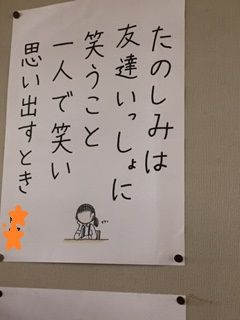 たのしみは
友達いっしょに
笑うこと
一人で笑い
思い出すとき